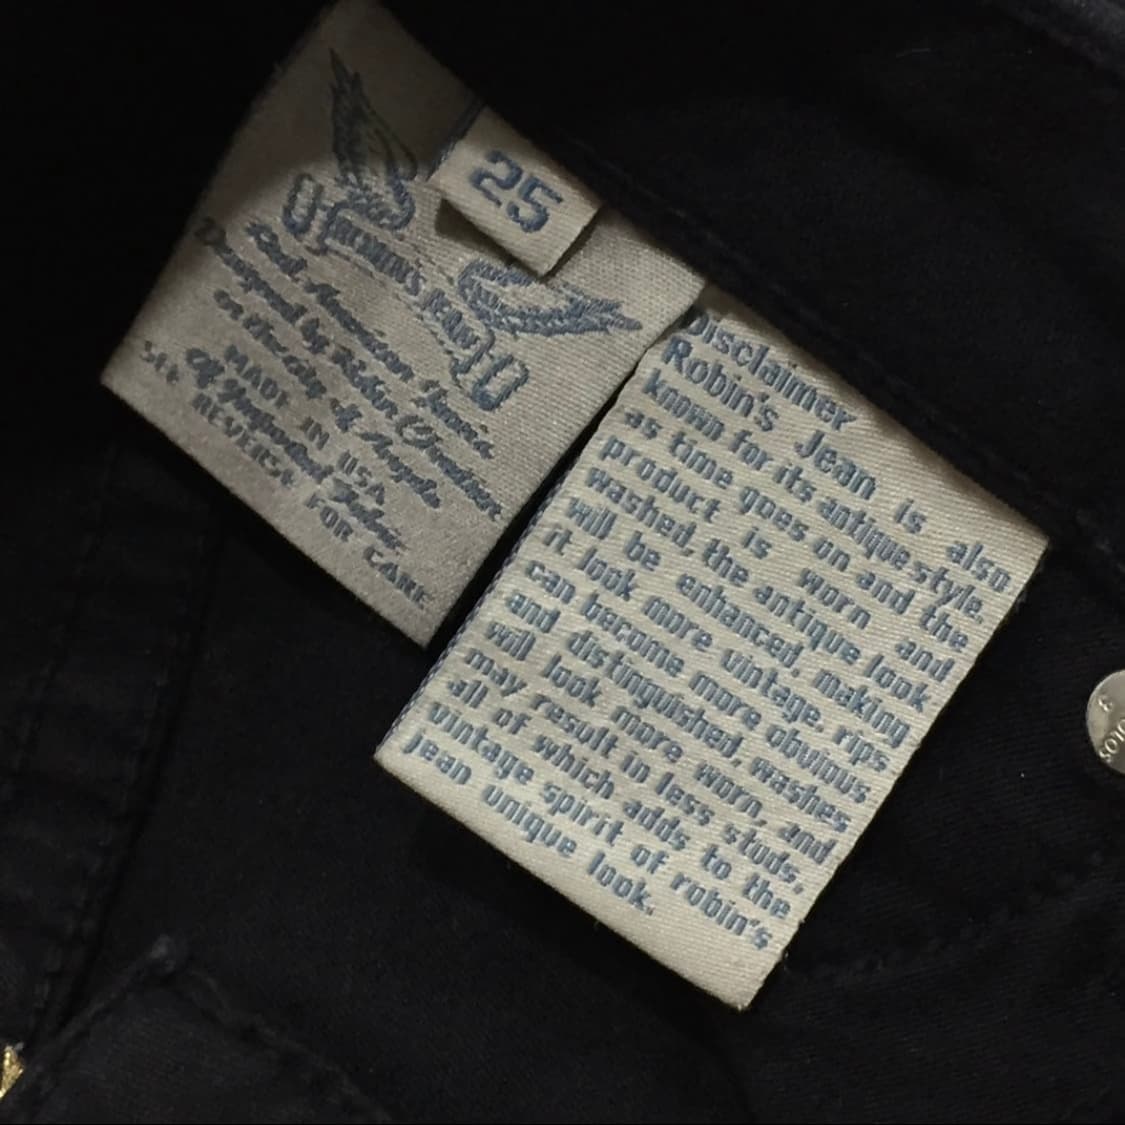 25
ROBIN'S JEAN
Real American Jeans
Designed by Robin Chretien
in the city of Angels
MADE IN USA
REVERSE FOR CARE
Disclaimer
Robin's Jean is also
known for its antique style.
as time goes on and the
product is worn and
washed, the antique look
will be enhanced, making
it look more vintage. rips
can become more obvious
and distinguished, washes
will look more worn, and
may result in less studs,
all of which adds to the
vintage spirit of robin's
jean unique look.